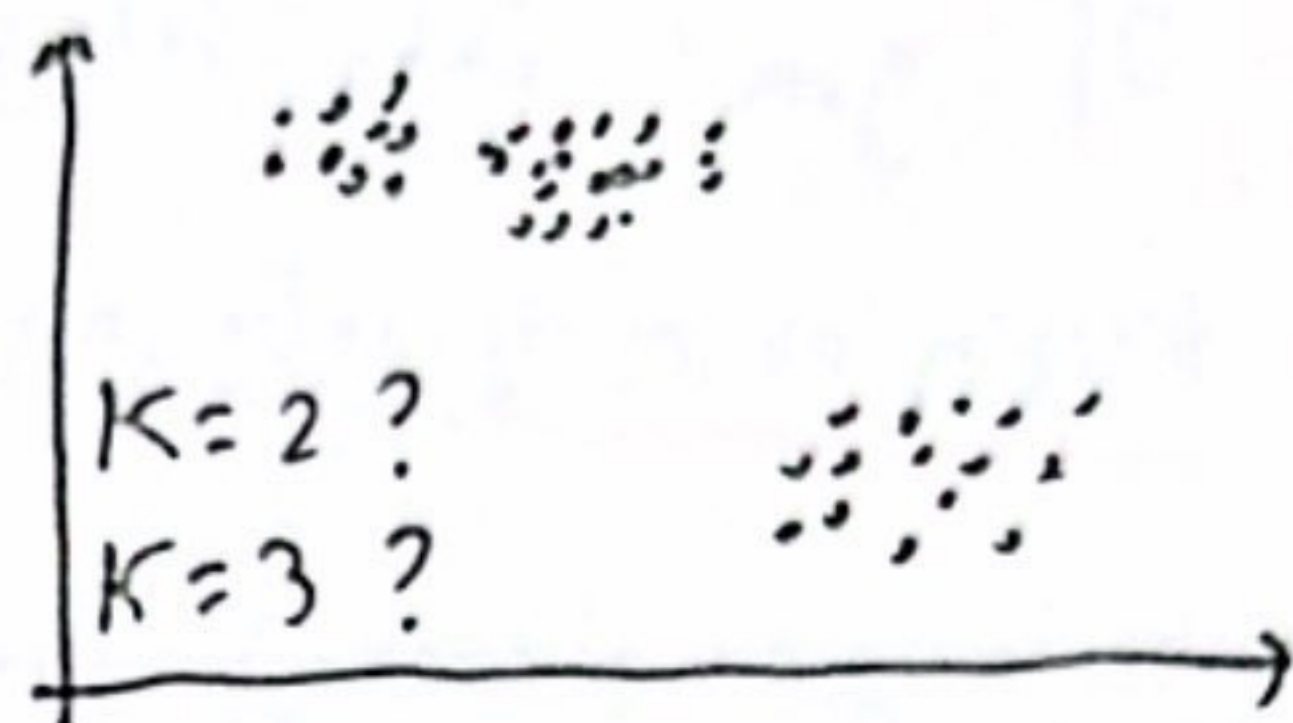 K = 2 ?
K = 3 ?